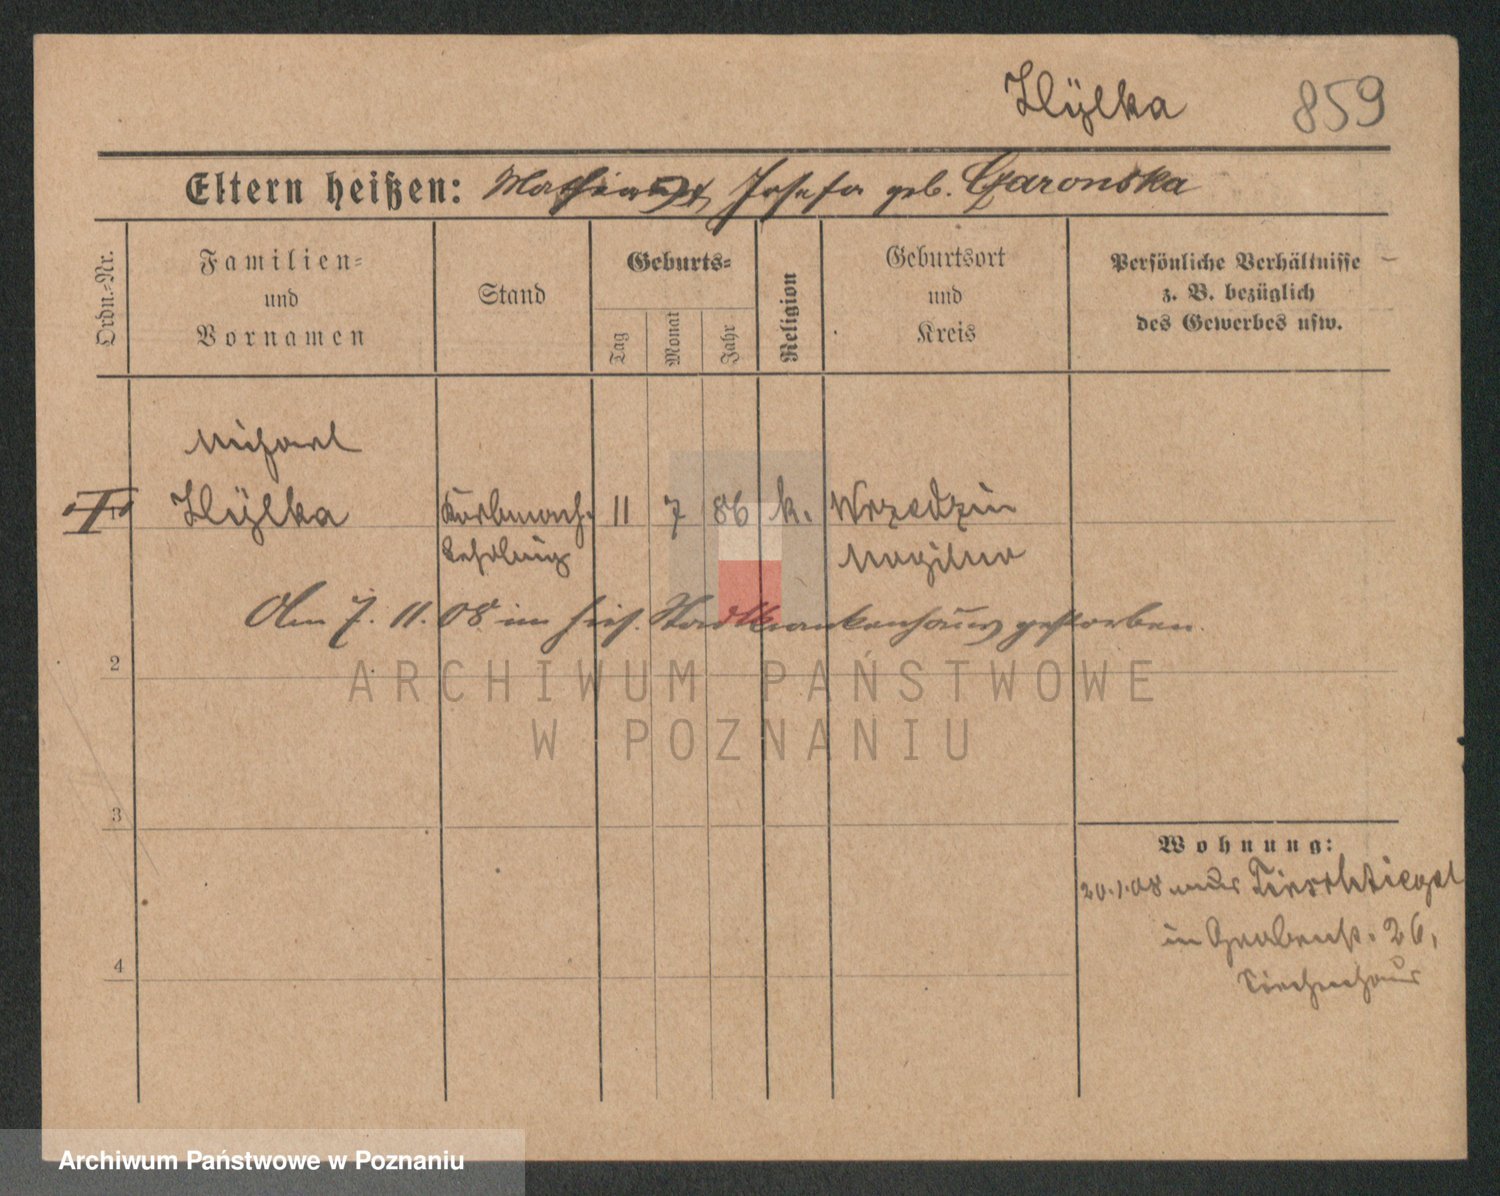 Hÿlka 859
Eltern heißen: Mathias Josefa geb. Czaronska
Ordn.-Nr.
Familien-
und
Vornamen
Stand
Geburts-
Tag
Monat
Jahr
Religion
Geburtsort
und
Kreis
Persönliche Verhältnisse
z. B. bezüglich
des Gewerbes usw.
Michael
1 Hÿlka Korbmach. 11 7 86 k. Wrzedzin
Lehrling Mogilno
Am 7. 11. 08 im hies. Stadtkrankenhaus gestorben.
2
3
4
Wohnung:
20.1.08 aus Tirschtiegel
in Grabenst. 26,
ARCHIWUM PAŃSTWOWE
W POZNANIU
Archiwum Państwowe w Poznaniu